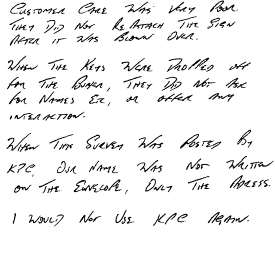 CUSTOMER CARE WAS VERY POOR
THEY DID NOT RE ATTACH THE SIGN
AFTER IT WAS BLOWN OVER.
WHEN THE KEYS WERE DROPPED OFF
FOR THE BUYER, THEY DID NOT ASK
FOR NAMES ETC, OR OFFER ANY
INTERACTION.
WHEN THIS SURVEY WAS POSTED BY
KPC, OUR NAME WAS NOT WRITTEN
ON THE ENVELOPE, ONLY THE ADRESS.
I WOULD NOT USE KPC AGAIN.